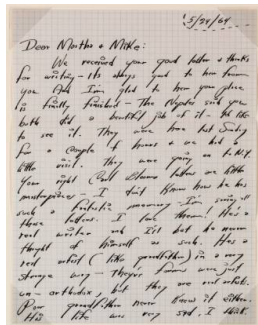 5/24/64
Dear Martha & Mike:
We received your good letter & thanks
for writing - its always good to hear from
you. And I'm glad to hear you place
is finally finished - The Naples said you
both did a beautiful job of it - We like
to see it. They were here last Sunday
for a couple of hours & we had a
little visit. They were going to N.Y.
Your right Carl letters are little
masterpieces - I don't know how he has
such a fantastic memory - I'm saving all
these letters. I love them! Hes a
real writer and I'll bet he never
thought of himself as such. Hes a
real artist (like grandfather) in a very
strange way - theyre forms were just
un-orthodox, but they are real artists.
Poor grandfather never knew it either.
His life was very sad, I think.